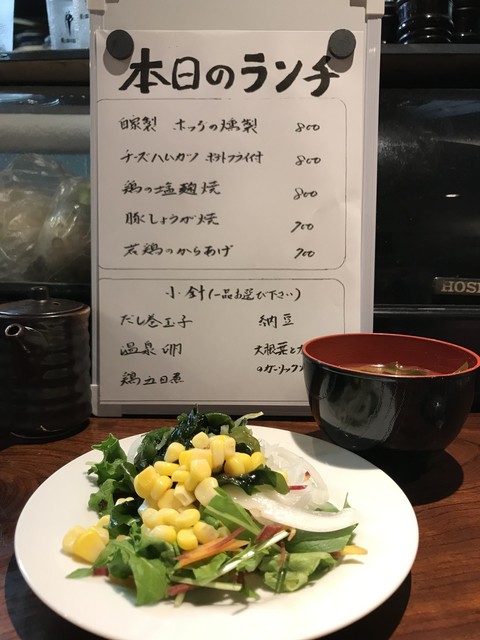 本日のランチ
自家製 ホッケの燻製 800
チーズハムカツ ポテトフライ付 800
鶏の塩麹焼 800
豚しょうが焼 700
若鶏のからあげ 700
小針(一品お選び下さい)
だし巻玉子 納豆
温泉卵 大根葉と
鶏五目煮 のガーリック
HOSHI